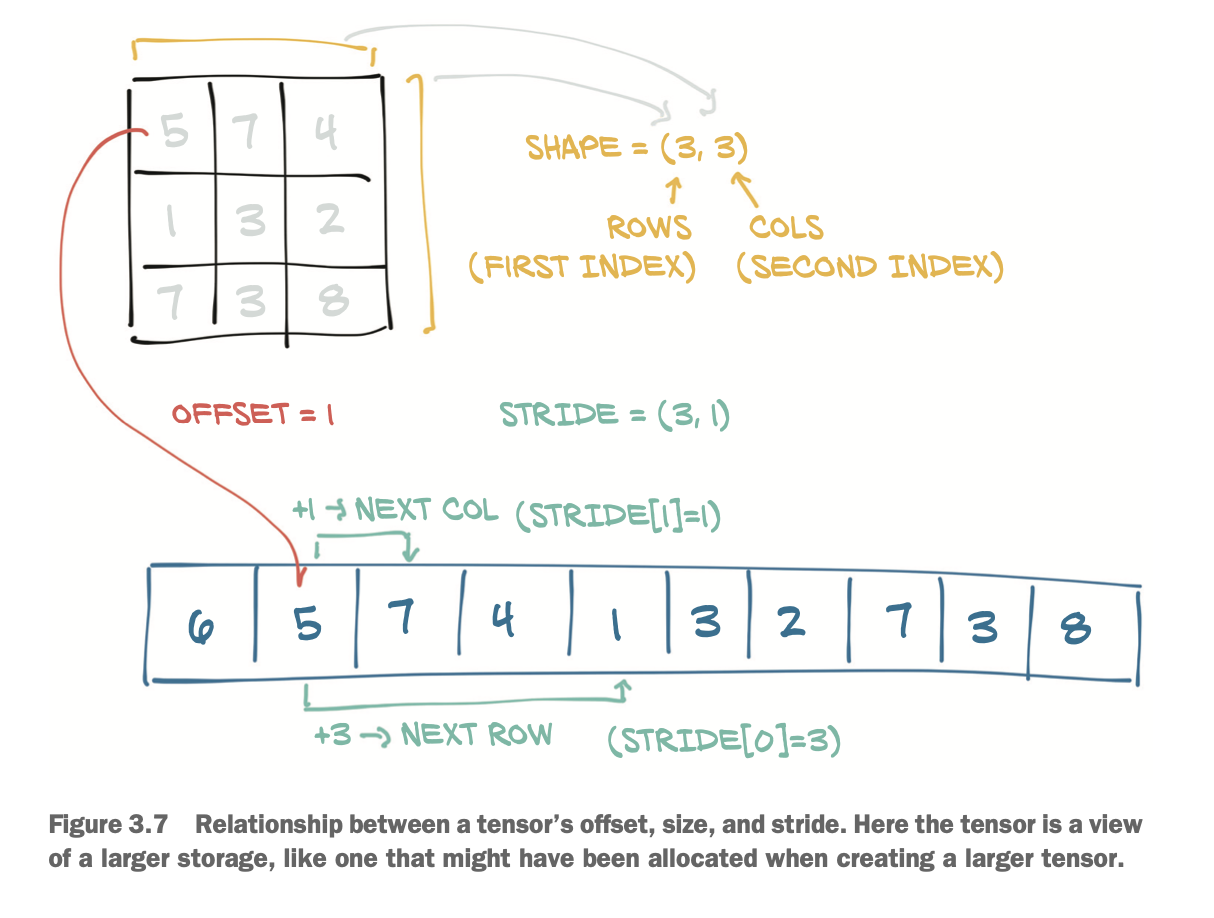 5 7 4
1 3 2
7 3 8
SHAPE = (3, 3)
ROWS
(FIRST INDEX)
COLS
(SECOND INDEX)
OFFSET = 1
STRIDE = (3, 1)
+1 → NEXT COL (STRIDE[1]=1)
6 5 7 4 1 3 2 7 3 8
+3 → NEXT ROW (STRIDE[0]=3)
Figure 3.7 Relationship between a tensor’s offset, size, and stride. Here the tensor is a view
of a larger storage, like one that might have been allocated when creating a larger tensor.